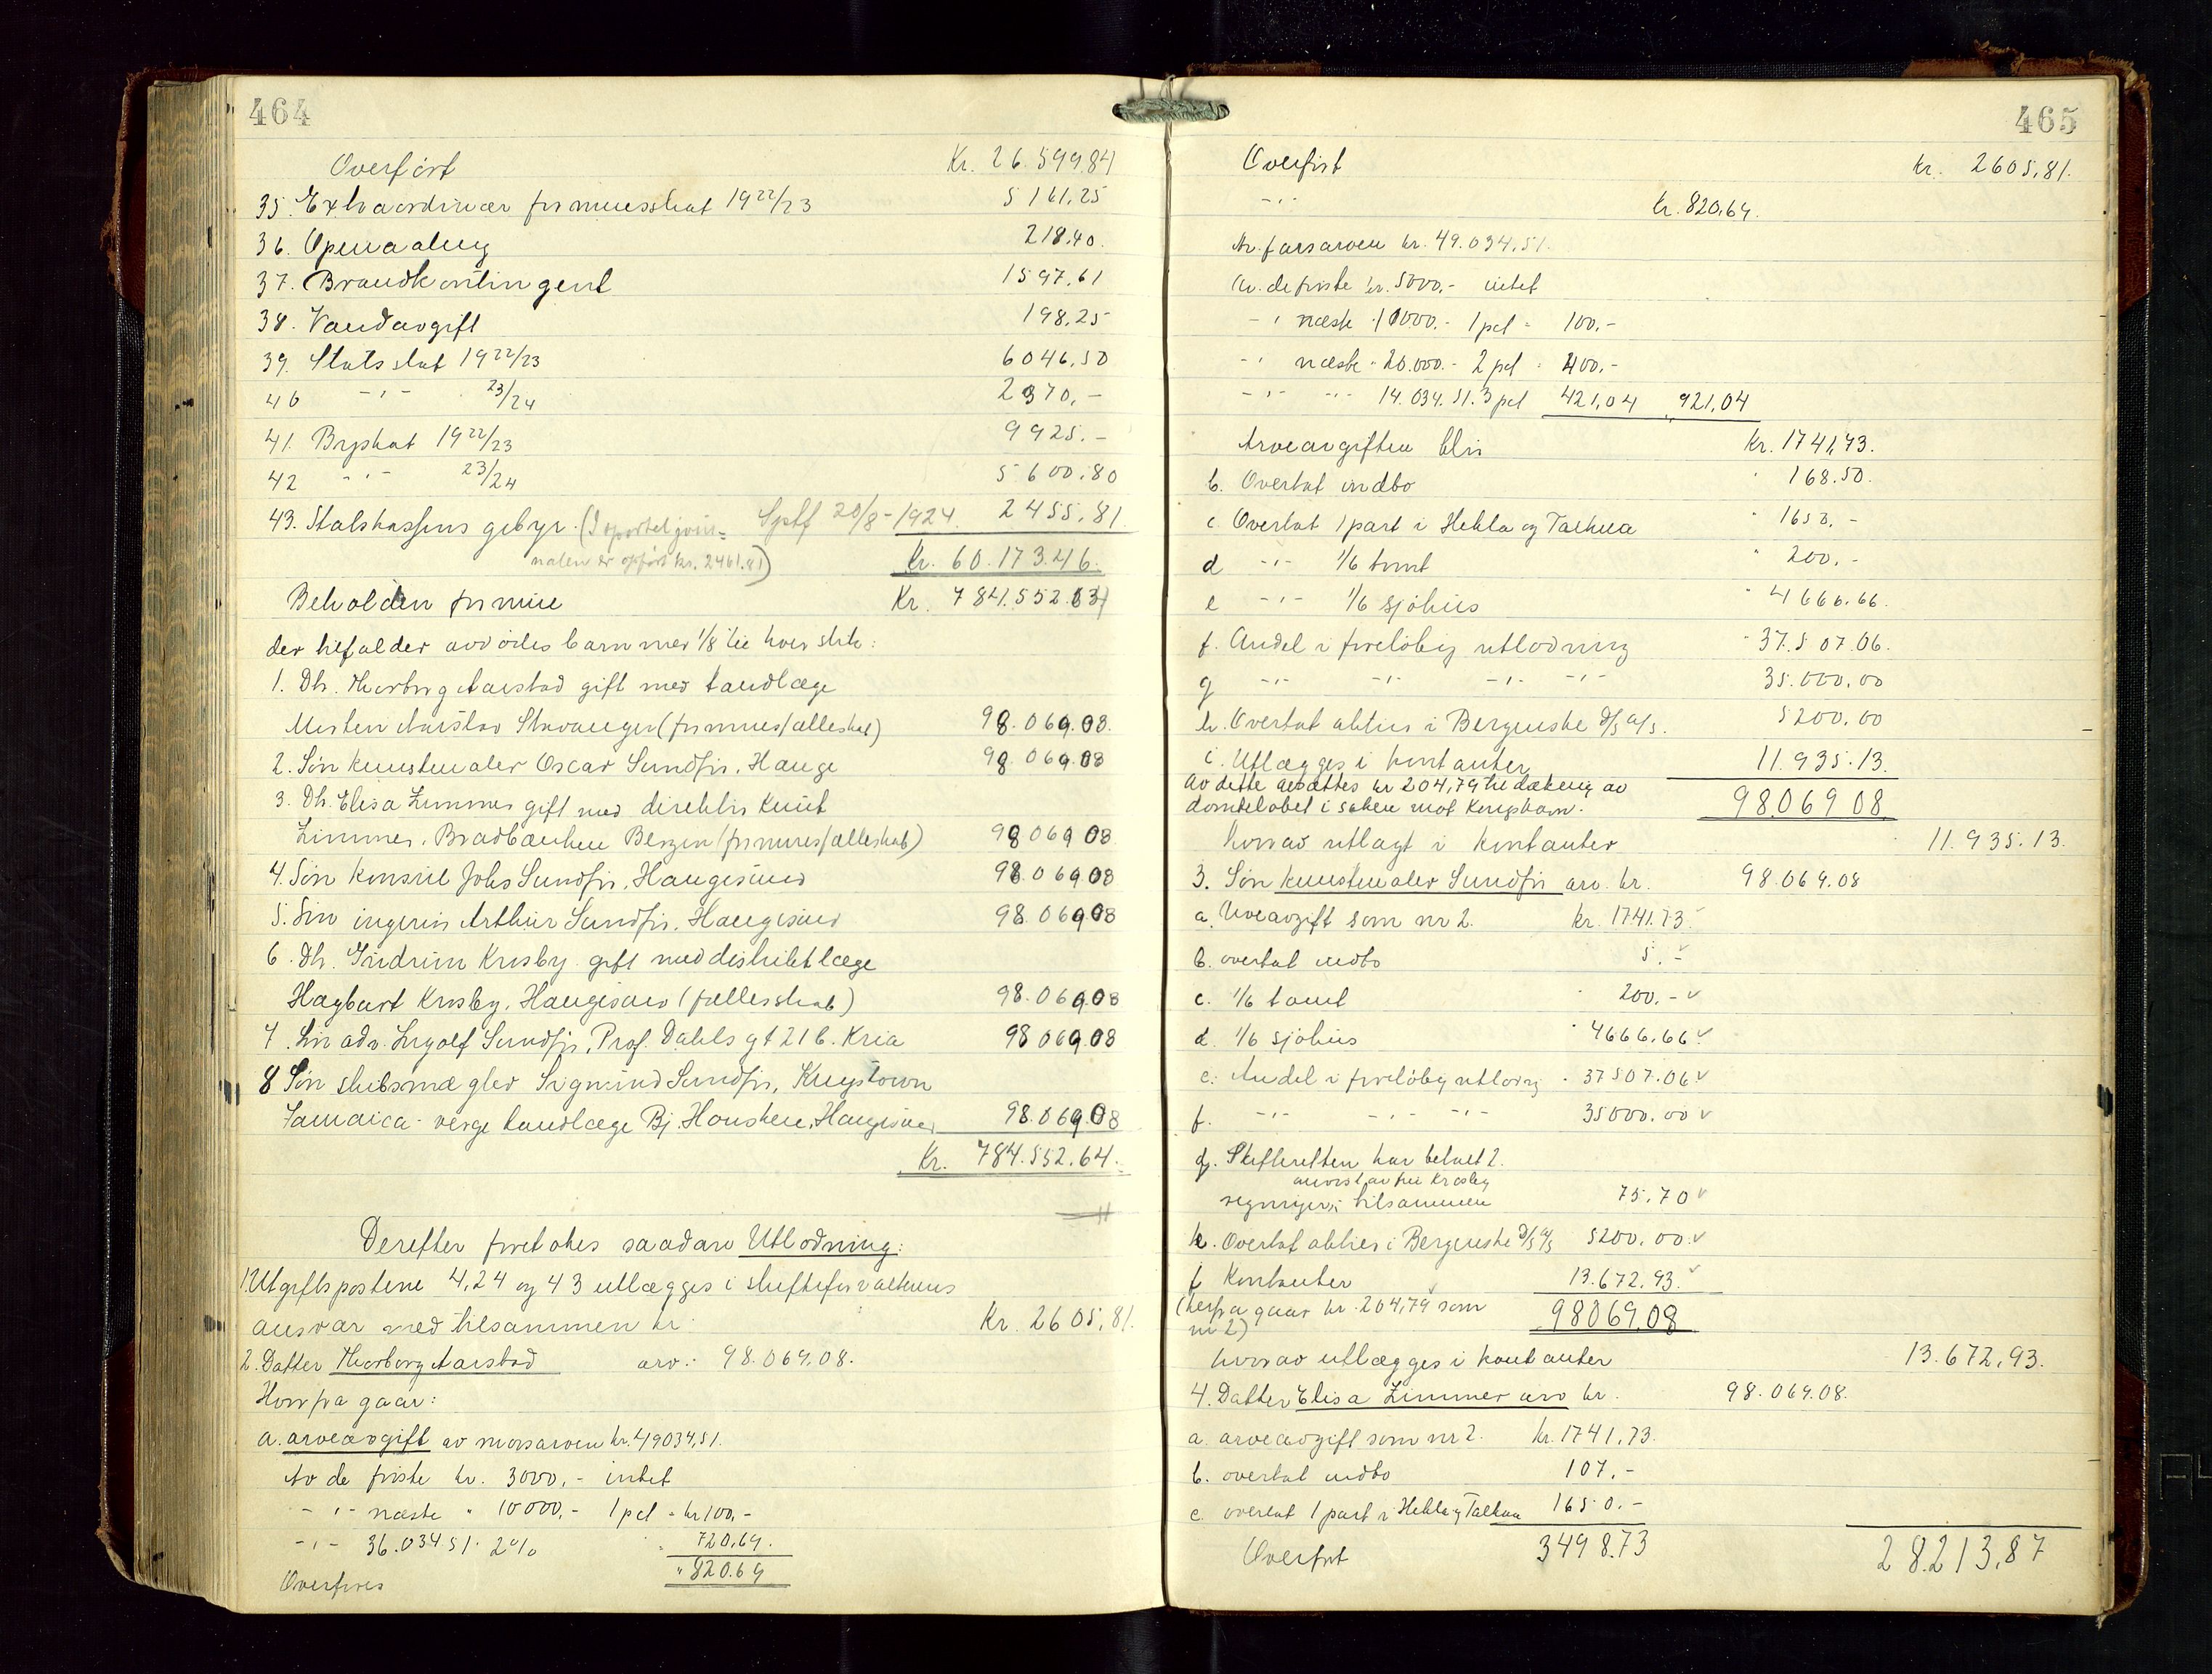 464
Overført Kr. 26.599.84
35. Extraordinær formuesskat 19 22/23 5161.25
36. Opmaaling 218.40.
37. Brandkontingent 1597.61
38. Vandavgift 198.25
39. Statsskat 19 22/23 6046.50
40 -"- 23/24 2370.-
41. Byskat 19 22/23 9925.-
42 -"- 23/24 5600.80
43. Statskassens gebyr (I sporteljour= 20/8-1924. 2455.81.
nalen er opført kr. 2461.81)
Kr. 60.173.46.
Beholden formue Kr. 784.552.63
der tilfalder avdødes barn med 1/8 til hver struk:
1. Dtr. Thorborg Aarstad gift med tandlæge
Morten Aarstad Stavanger (formuesfælleskab) 98.069.08.
2. Søn kunstmaler Oscar Sundfør, Hauge 98.069.08
3. Dtr. Elisa Zimmer gift med direktør Knut
Zimmer, Bradbænken Bergen (formuesfælleskab) 98.069.08
4. Søn konsul Johs Sundfør, Haugesund 98.069.08
5. Søn ingeniør Arthur Sundfør, Haugesund 98.069.08
6. Dtr. Gudrun Krosby gift med distriktlæge
Hagbart Krosby, Haugesund (fællesskab) 98.069.08
7. Søn adv. Ingolf Sundfør, Prof. Dahls gt 21 b. Kria 98.069.08
8 Søn skibsmægler Sigmund Sundfør, Kingstown
Jamaica - verge tandlæge Bj. Housken, Haugesund 98.069.08
Kr. 784.552.64.
Derefter foretokes saadan Utlodning:
1. Utgiftspostene 4, 24 og 43 utlægges i skifteforvalterens
ansvar med tilsammen kr. Kr. 2605.81.
2. Datter Thorborg Aarstad arv: 98.069.08.
Hvorfra gaar:
a. arveavgift av morsarven kr. 49034.51.
Av de første kr. 3000,- intet
-"- næste " 10000,- 1 pct = kr 100,-
-"- 36.034.51. 2% 720.69.
Overføres " 820.69
465
Overført Kr. 2605,81.
-"- Kr. 820.69.
Av farsarven kr. 49.034.51.
Av de første kr. 5000.- intet
-" næste " 10000.- 1 pct = 100,-
-" næste " 20.000.- 2 pct = 400,-
-"- -"- 14.034.51. 3 pct 421,04 921,04
Arveavgiften blir Kr. 1741,73.
b. Overtat indbo " 168.50.
c. Overtat 1 part i Hekla og Talhua " 1653.-
d -"- 1/6 tomt " 200.-
e -"- 1/6 sjøhus " 4666.66.
f. Andel i foreløbig utlodning " 37.507.06.
g -"- -"- -"- -"- 35.000.00
h. Overtat aktier i Bergenske D/S A/S. 5200.00
i. Utlægges i kontanter 11.935.13.
Av dette avsættes kr 204,79 til dækning av
domtelobet i saken mot Kongshavn. 98069 08
hvorav utlagt i kontanter 11.935.13.
3. Søn kunstmaler Sundfør arv. kr. 98.069.08
a. Arveavgift som nr 2. kr. 1741.73
b. overtat indbo 5.-
c. 1/6 tomt " 200.-
d. 1/6 sjøhus " 4666.66
e. Andel i foreløbig utlodn " 37507.06
f. -"- -"- -"- 35000.00
g. Skifteretten har betalt 2.
anvist av fru Krosby
regninger, tilsammen 75.70
h. Overtat aktier i Bergenske D/S A/S 5200.00.
f Kontanter 13.672.93.
(herfra gaar kr. 204,79 som 98069.08
nr 2)
hvorav utlægges i kontanter 13.672,93.
4. Datter Elisa Zimmer arv kr. 98.069.08.
a. arveavgift som nr 2. kr. 1741.73.
b. overtat indbo 107.-
c. overtat 1 part i Hekla og Talhua 1650.-
Overført 3498.73 28213,87